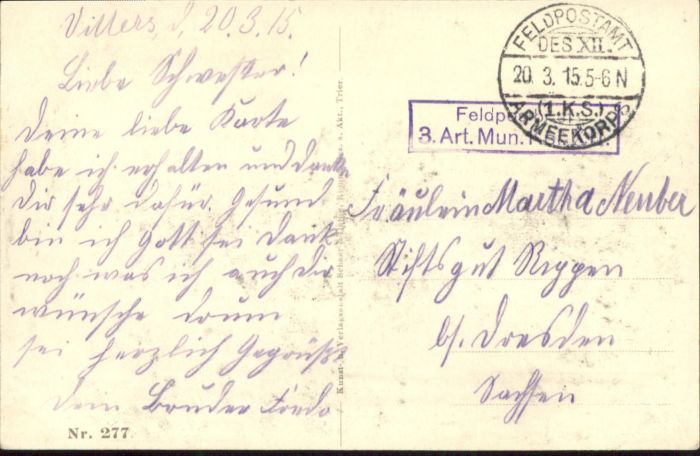 Villers, d, 20.3.15.
Liebe Schwester!
Deine liebe Karte
habe ich erhalten und danke
Dir sehr dafür. Gesund
bin ich Gott sei Dank
noch was ich auch Dir
wünsche drum
sei herzlich Gegrüßt
dein Bruder
Nr. 277
Kunst- u. Verlagsanstalt Schaar & Dathe, Komm.-Ges. a. Akt., Trier.
FELDPOSTAMT
DES XII.
20. 3. 15.5-6 N
(1.K.S.)
ARMEEKORPS
3. Art. Mun.
Fräulein Martha Neuber
Stiftsgut Rippen
b/. Dresden
Sachsen